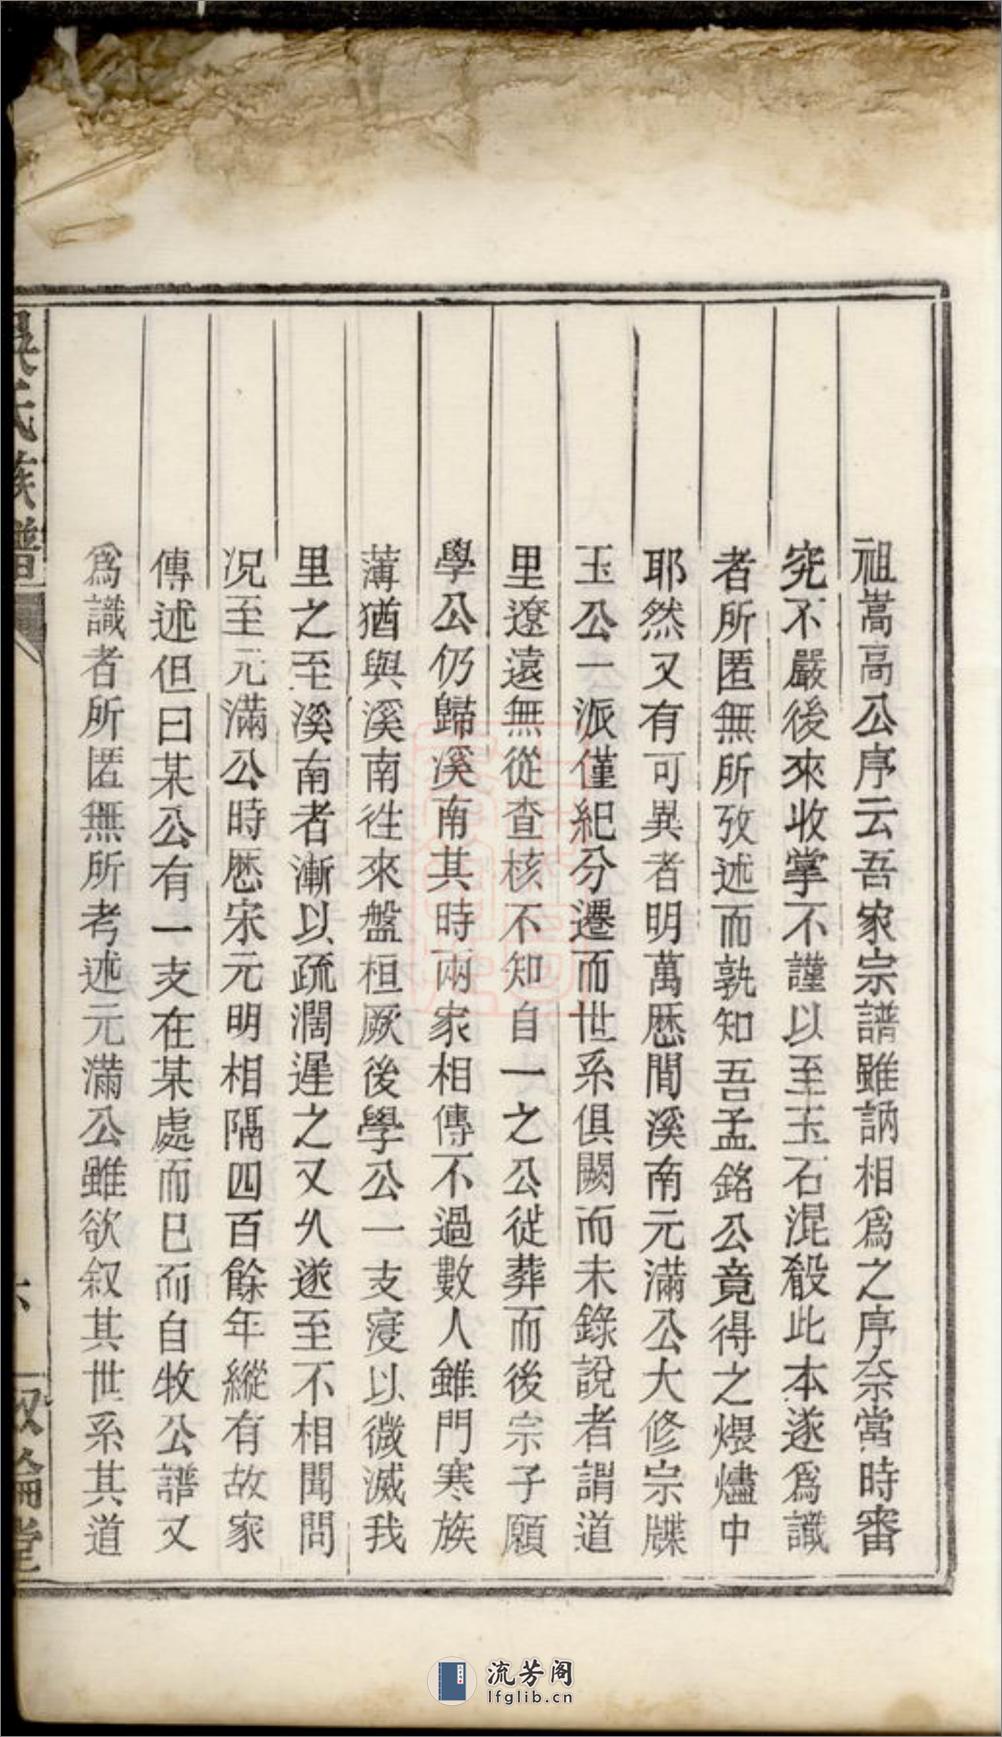 祖嵩高公序云吾家宗譜雖訥相爲之序奈當時審
究不嚴後來收掌不謹以至玉石混殽此本遂爲識
者所匿無所攷述而孰知吾孟銘公竟得之煨燼中
耶然又有可異者明萬厯間溪南元滿公大修宗牒
玉公一派僅紀分遷而世系俱闕而未錄說者謂道
里遼遠無從查核不知自一之公從葬而後宗子願
學公仍歸溪南其時兩家相傳不過數人雖門寒族
薄猶與溪南徃來盤桓厥後學公一支寖以微滅我
里之至溪南者漸以疏濶遲之又久遂至不相聞問
况至元滿公時厯宋元明相隔四百餘年縱有故家
傳述但曰某公有一支在某處而已而自牧公譜又
爲識者所匿無所考述元滿公雖欲叙其世系其道
吳氏族譜
六
流芳阁
lfglib.cn